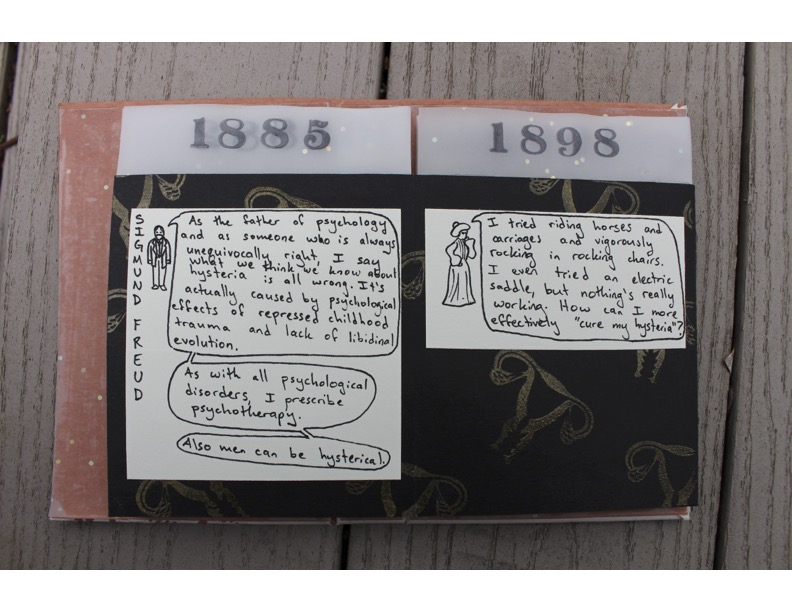 1885
SIGMUND FREUD
As the father of psychology
and as someone who is always
unequivocally right, I say
what we think we know about
hysteria is all wrong. It's
actually caused by psychological
effects of repressed childhood
trauma and lack of libidinal
evolution.
As with all psychological
disorders, I prescribe
psychotherapy.
Also men can be hysterical.
1898
I tried riding horses and
carriages and vigorously
rocking in rocking chairs.
I even tried an electric
saddle, but nothing's really
working. How can I more
effectively "cure my hysteria"?